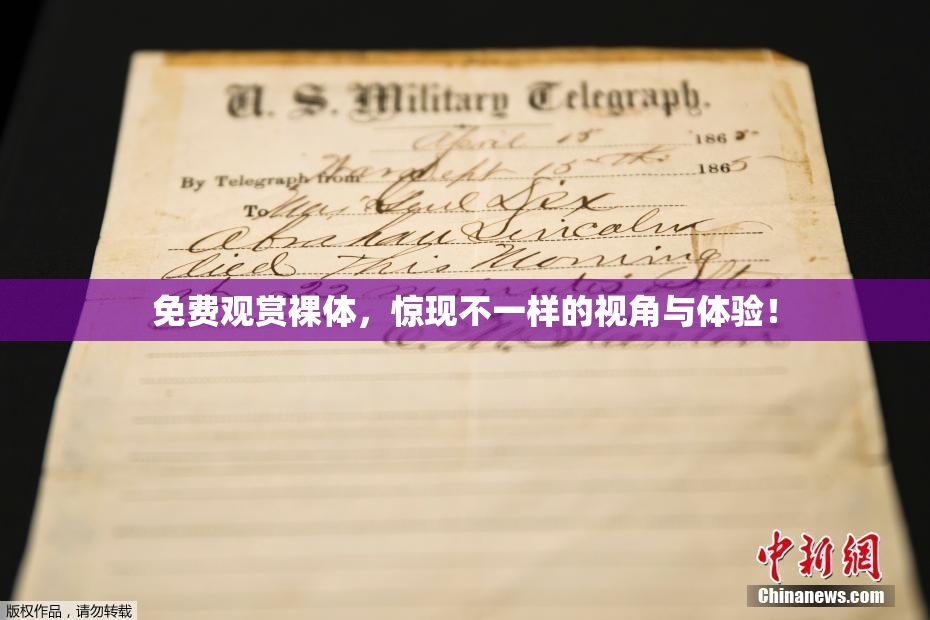 U. S. Military Telegraph.
April 15 1865
By Telegraph from War Dept 15th 1865
To Maj Genl Dix
Abraham Lincoln
died This Morning
at 22 minutes after
免费观赏裸体，惊现不一样的视角与体验！
E. M. Stanton
中新网
Chinanews.com
版权作品，请勿转载